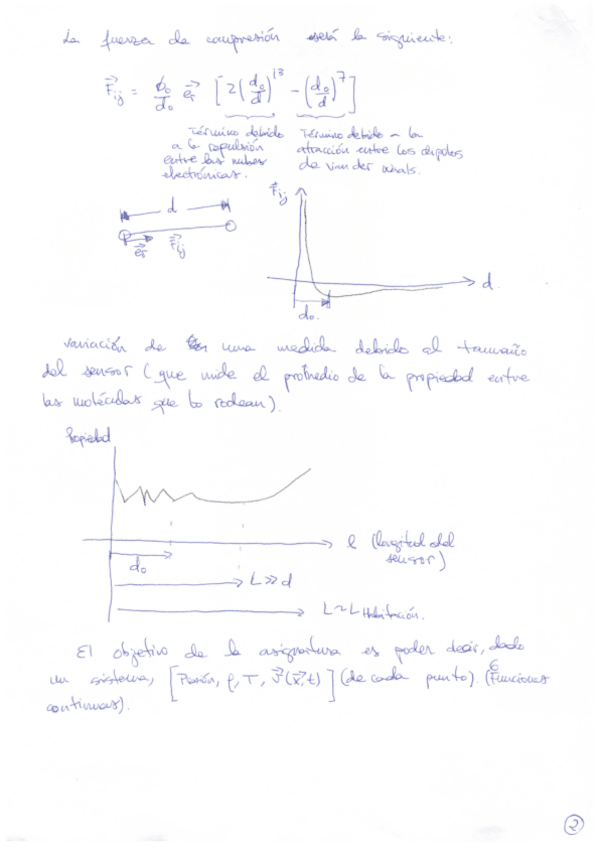 La fuerza de compresión será la siguiente:
F⃗ij = ϕ₀/d₀ e⃗r [2(d₀/d)¹³ − (d₀/d)⁷]
Término debido a la repulsión entre las nubes electrónicas.
Término debido a la atracción entre los dipolos de van der Waals.
d
e⃗r
F⃗ij
F⃗ij
d.
d₀.
variación de una medida debido al tamaño
del sensor (que mide el promedio de la propiedad entre
las moléculas que lo rodean).
Propiedad
l (longitud del
sensor)
d₀
L≫d
L~L Habitación.
El objetivo de la asignatura es poder decir, dado
un sistema, [Presión, ρ, T, v⃗(x⃗,t)] (de cada punto). (6 Funciones
continuas).
2